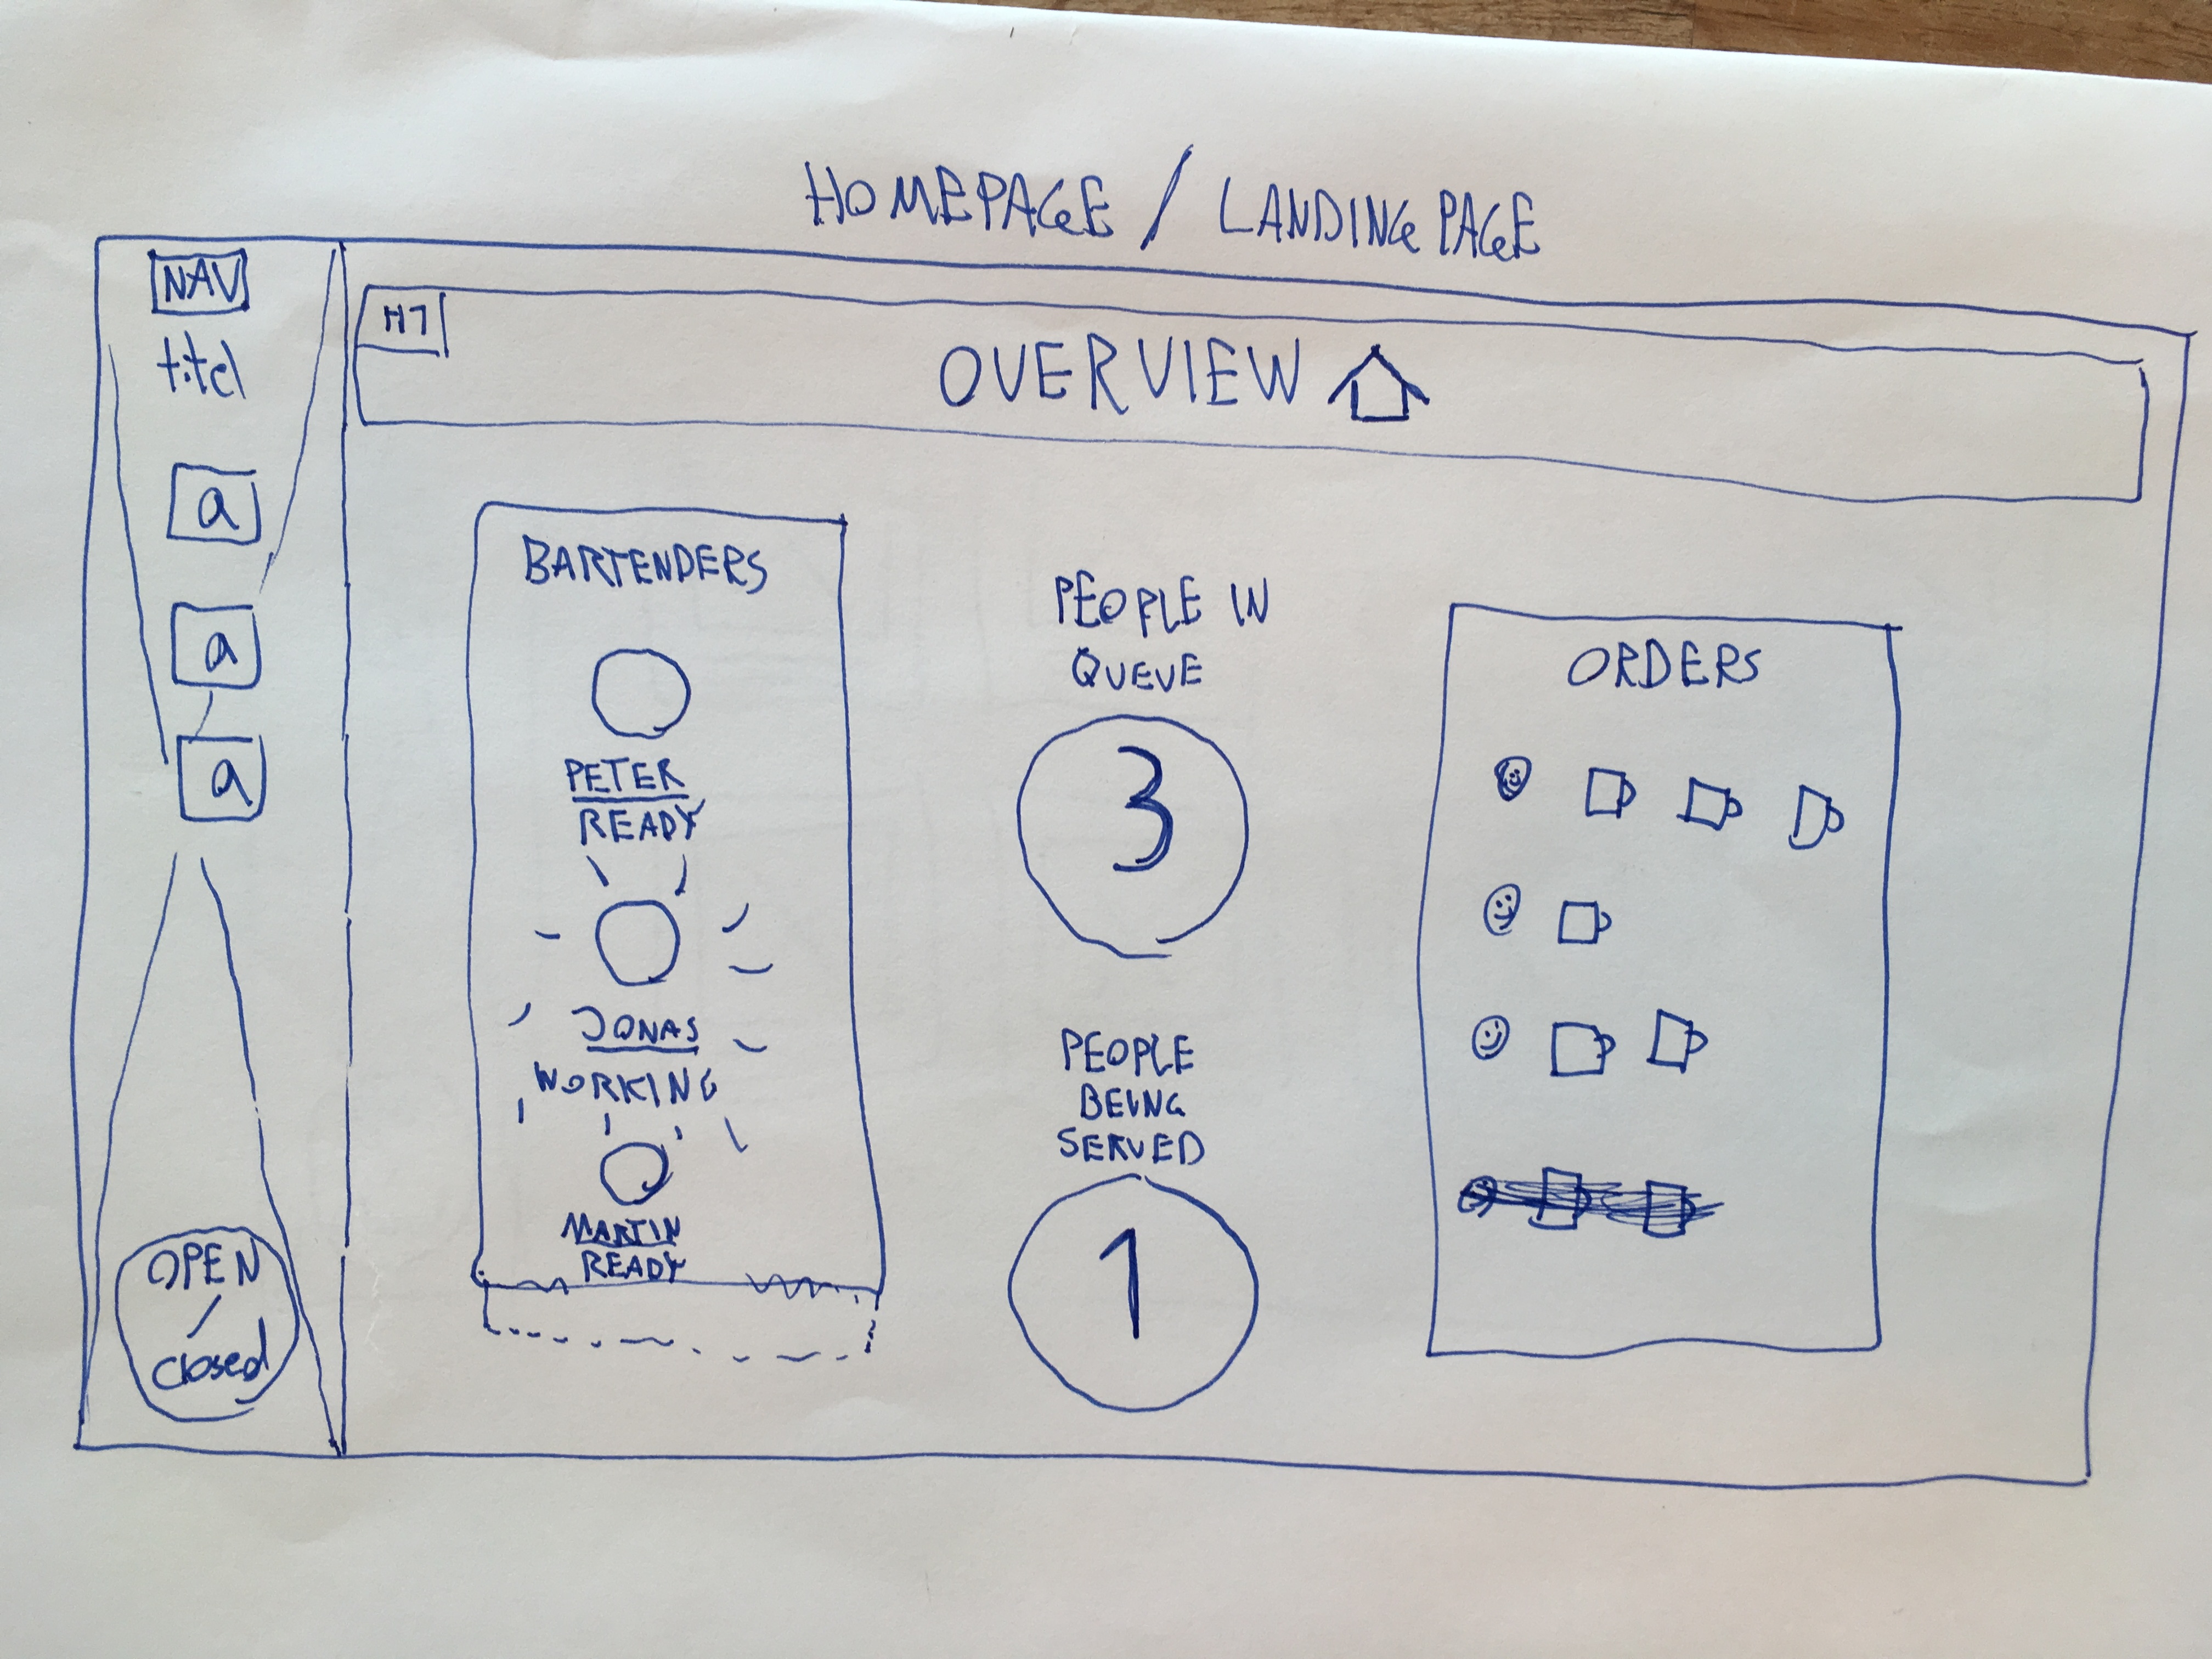 HOMEPAGE / LANDING PAGE
NAV
titel
a
a
a
OPEN
/
closed
H1
OVERVIEW
BARTENDERS
PETER
READY
JONAS
WORKING
MARTIN
READY
PEOPLE IN
QUEUE
3
PEOPLE
BEING
SERVED
1
ORDERS